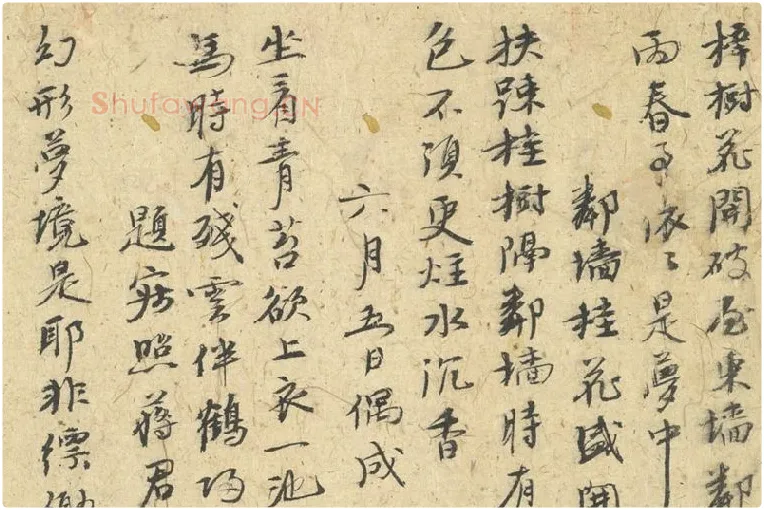 梓樹花開破屋東墻鄰
雨春事依〻是夢中
鄰墻桂花盛開
扶踈桂樹隔鄰墻時有
色不須更炷水沉香
六月五日偶成
坐看青苔欲上衣一池
馬時有殘雲伴鶴歸
題寂照蔣君
幻形夢境是耶非縹